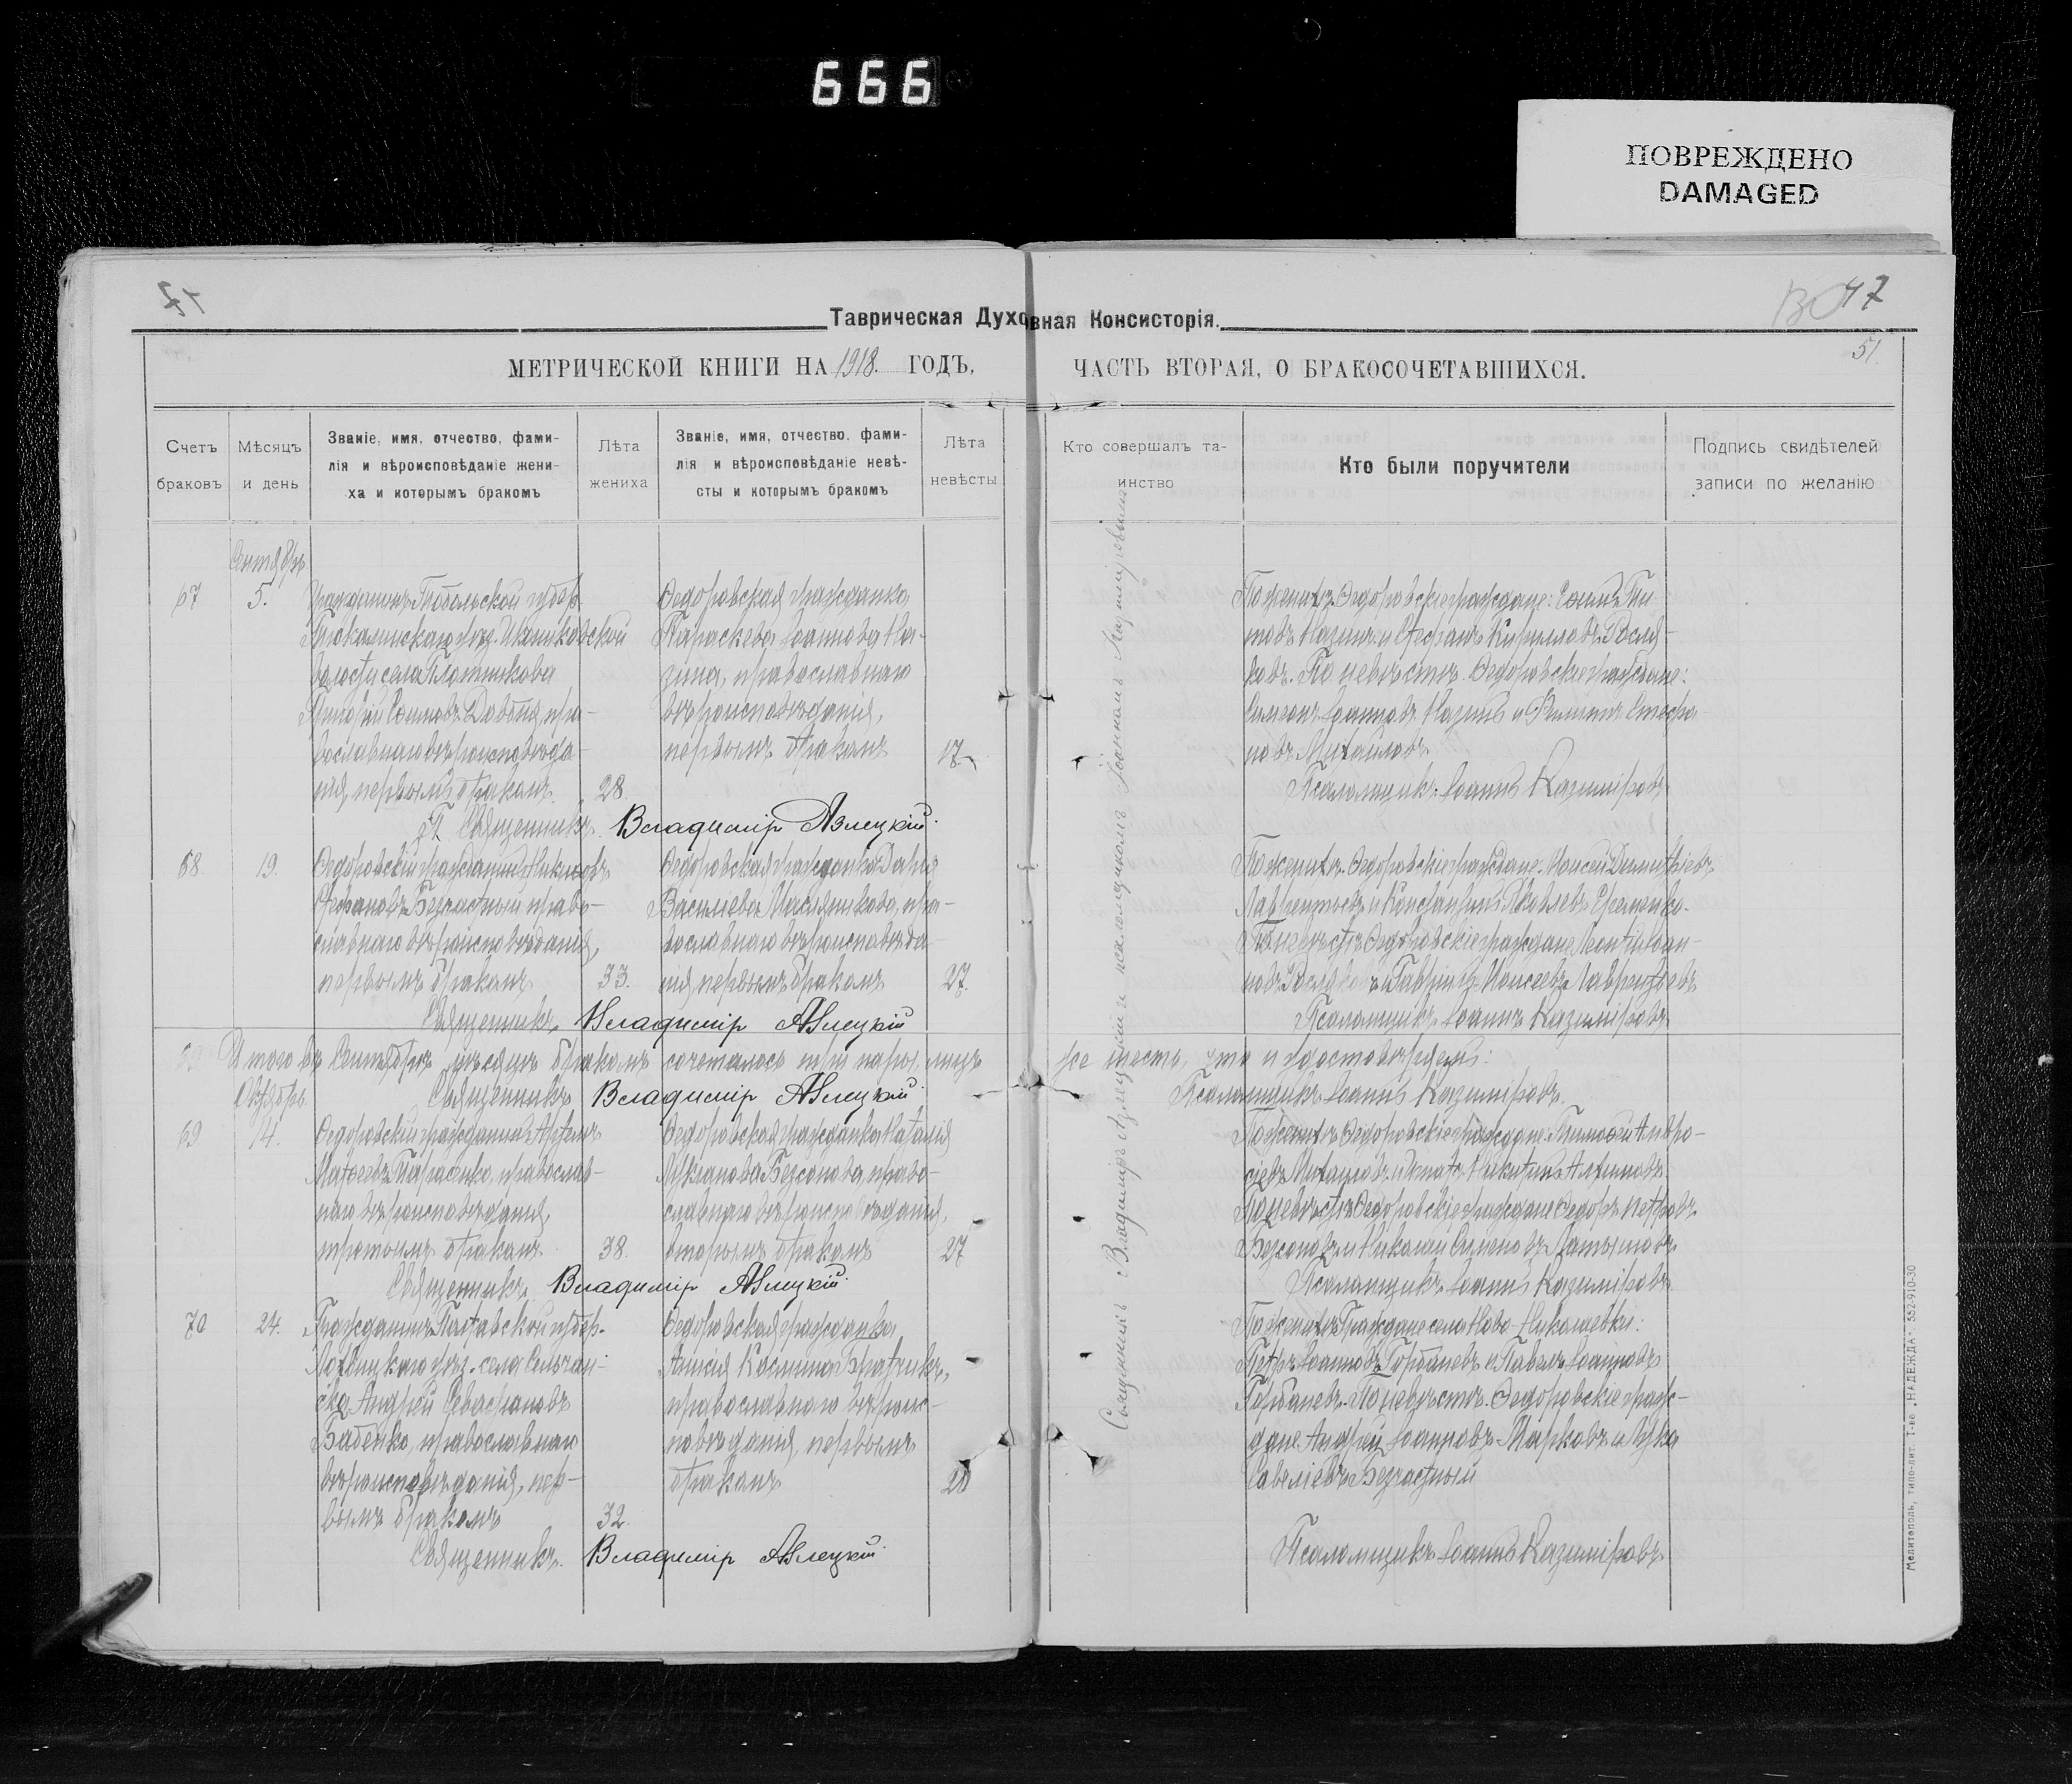 666
ПОВРЕЖДЕНО
DAMAGED
47
Таврическая Духовная Консисторія.
МЕТРИЧЕСКОЙ КНИГИ НА 1918. ГОДЪ, ЧАСТЬ ВТОРАЯ, О БРАКОСОЧЕТАВШИХСЯ.
51.
Счетъ браковъ
Мѣсяцъ и день
Званіе, имя, отчество, фами-
лія и вѣроисповѣданіе жени-
ха и которымъ бракомъ
Лѣта жениха
Званіе, имя, отчество, фами-
лія и вѣроисповѣданіе невѣ-
сты и которымъ бракомъ
Лѣта невѣсты
Кто совершалъ та-
инство
Кто были поручители
Подпись свидѣтелей
записи по желанію
Священникъ Владиміръ Азлецкій и псаломщикъ Іоанномъ Казиміровымъ
Сентябрь
67
5.
Гражданинъ Тобольской губер.
Тюкалинскаго уѣз.
волости села Плотникова
Григорій Іоанновъ Довбня, пра-
вославнаго вѣроисповѣда-
нія, первымъ бракомъ.
28
Ѳедоровская гражданка
Параскева Іоаннова На-
зина, православнаго
вѣроисповѣданія,
первымъ бракомъ
17
По женихѣ: Ѳедоровскіе граждане: Іоаннъ Ти-
товъ Назинъ и Стефанъ Кирилловъ Росля-
ковъ. По невѣстѣ: Ѳедоровскіе граждане:
Симеонъ Іоанновъ Назинъ и Филиппъ Стефа-
новъ Михайловъ.
Псаломщикъ Іоаннъ Казиміровъ.
Священникъ Владиміръ Азлецкій.
68.
19.
Ѳедоровскій гражданинъ
Стефановъ Безчастный право-
славнаго вѣроисповѣданія,
первымъ бракомъ
33.
Ѳедоровская гражданка Дарія
Василіева Масленикова, пра-
вославнаго вѣроисповѣда-
нія первымъ бракомъ
27.
По женихѣ: Ѳедоровскіе граждане: Моисей Димитріевъ
Лаврентьевъ и Константинъ Яковлевъ Еременко.
По невѣстѣ: Ѳедоровскіе граждане Леонтій Іоан-
новъ Росляковъ и Гавріилъ Моисеевъ Лаврентьевъ
Псаломщикъ Іоаннъ Казиміровъ.
Священникъ Владиміръ Азлецкій
Итого въ Сентябрѣ мѣсяцѣ бракомъ сочеталось три пары, лицъ же шесть, что и удостовѣряемъ:
Священникъ Владиміръ Азлецкій Псаломщикъ Іоаннъ Казиміровъ.
Октябрь
69
14.
Ѳедоровскій гражданинъ Артемъ
Матѳеевъ Тарасенко, православ-
наго вѣроисповѣданія,
третьимъ бракомъ.
38.
Ѳедоровская гражданка Наталія
Лукіанова Безсонова, право-
славнаго вѣроисповѣданія,
вторымъ бракомъ
27
По женихѣ Ѳедоровскіе граждане: Тимоѳей Амвро-
сіевъ Михайловъ и Игнатъ Никитинъ
По невѣстѣ Ѳедоровскіе граждане Ѳедоръ Петровъ
Безсоновъ и Николай Симеоновъ Латышовъ
Псаломщикъ Іоаннъ Казиміровъ
Священникъ Владиміръ Азлецкій.
70
24.
Гражданинъ Полтавской губер.
Лохвицкаго уѣз. села Сенчан-
ска Андрей Севастіановъ
Бабенко, православнаго
вѣроисповѣданія, пер-
вымъ бракомъ
32.
Ѳедоровская гражданка
Анисія Космина Братчикъ,
православнаго вѣроис-
повѣданія, первымъ
бракомъ
20
По женихѣ Граждане села Ново-Николаевки:
Петръ Іоанновъ Горбаневъ и Павелъ Іоанновъ
Горбаневъ. По невѣстѣ. Ѳедоровскіе граж-
дане Андрей Іоанновъ Марковъ и Лука
Савеліевъ Безчастный
Псаломщикъ Іоаннъ Казиміровъ.
Священникъ. Владиміръ Азлецкій
Мелитополь, типо-лит. Т-во „НАДЕЖДА". 552-910-30